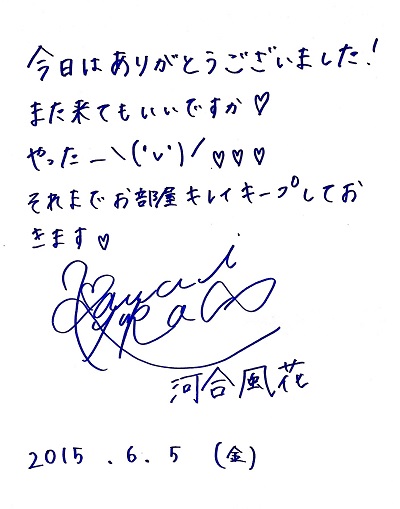 今日はありがとうございました!
また来てもいいですか♡
やったー＼('ν')／♡♡♡
それまでお部屋キレイキープしてお
きます♡
河合風花
2015.6.5 (金)